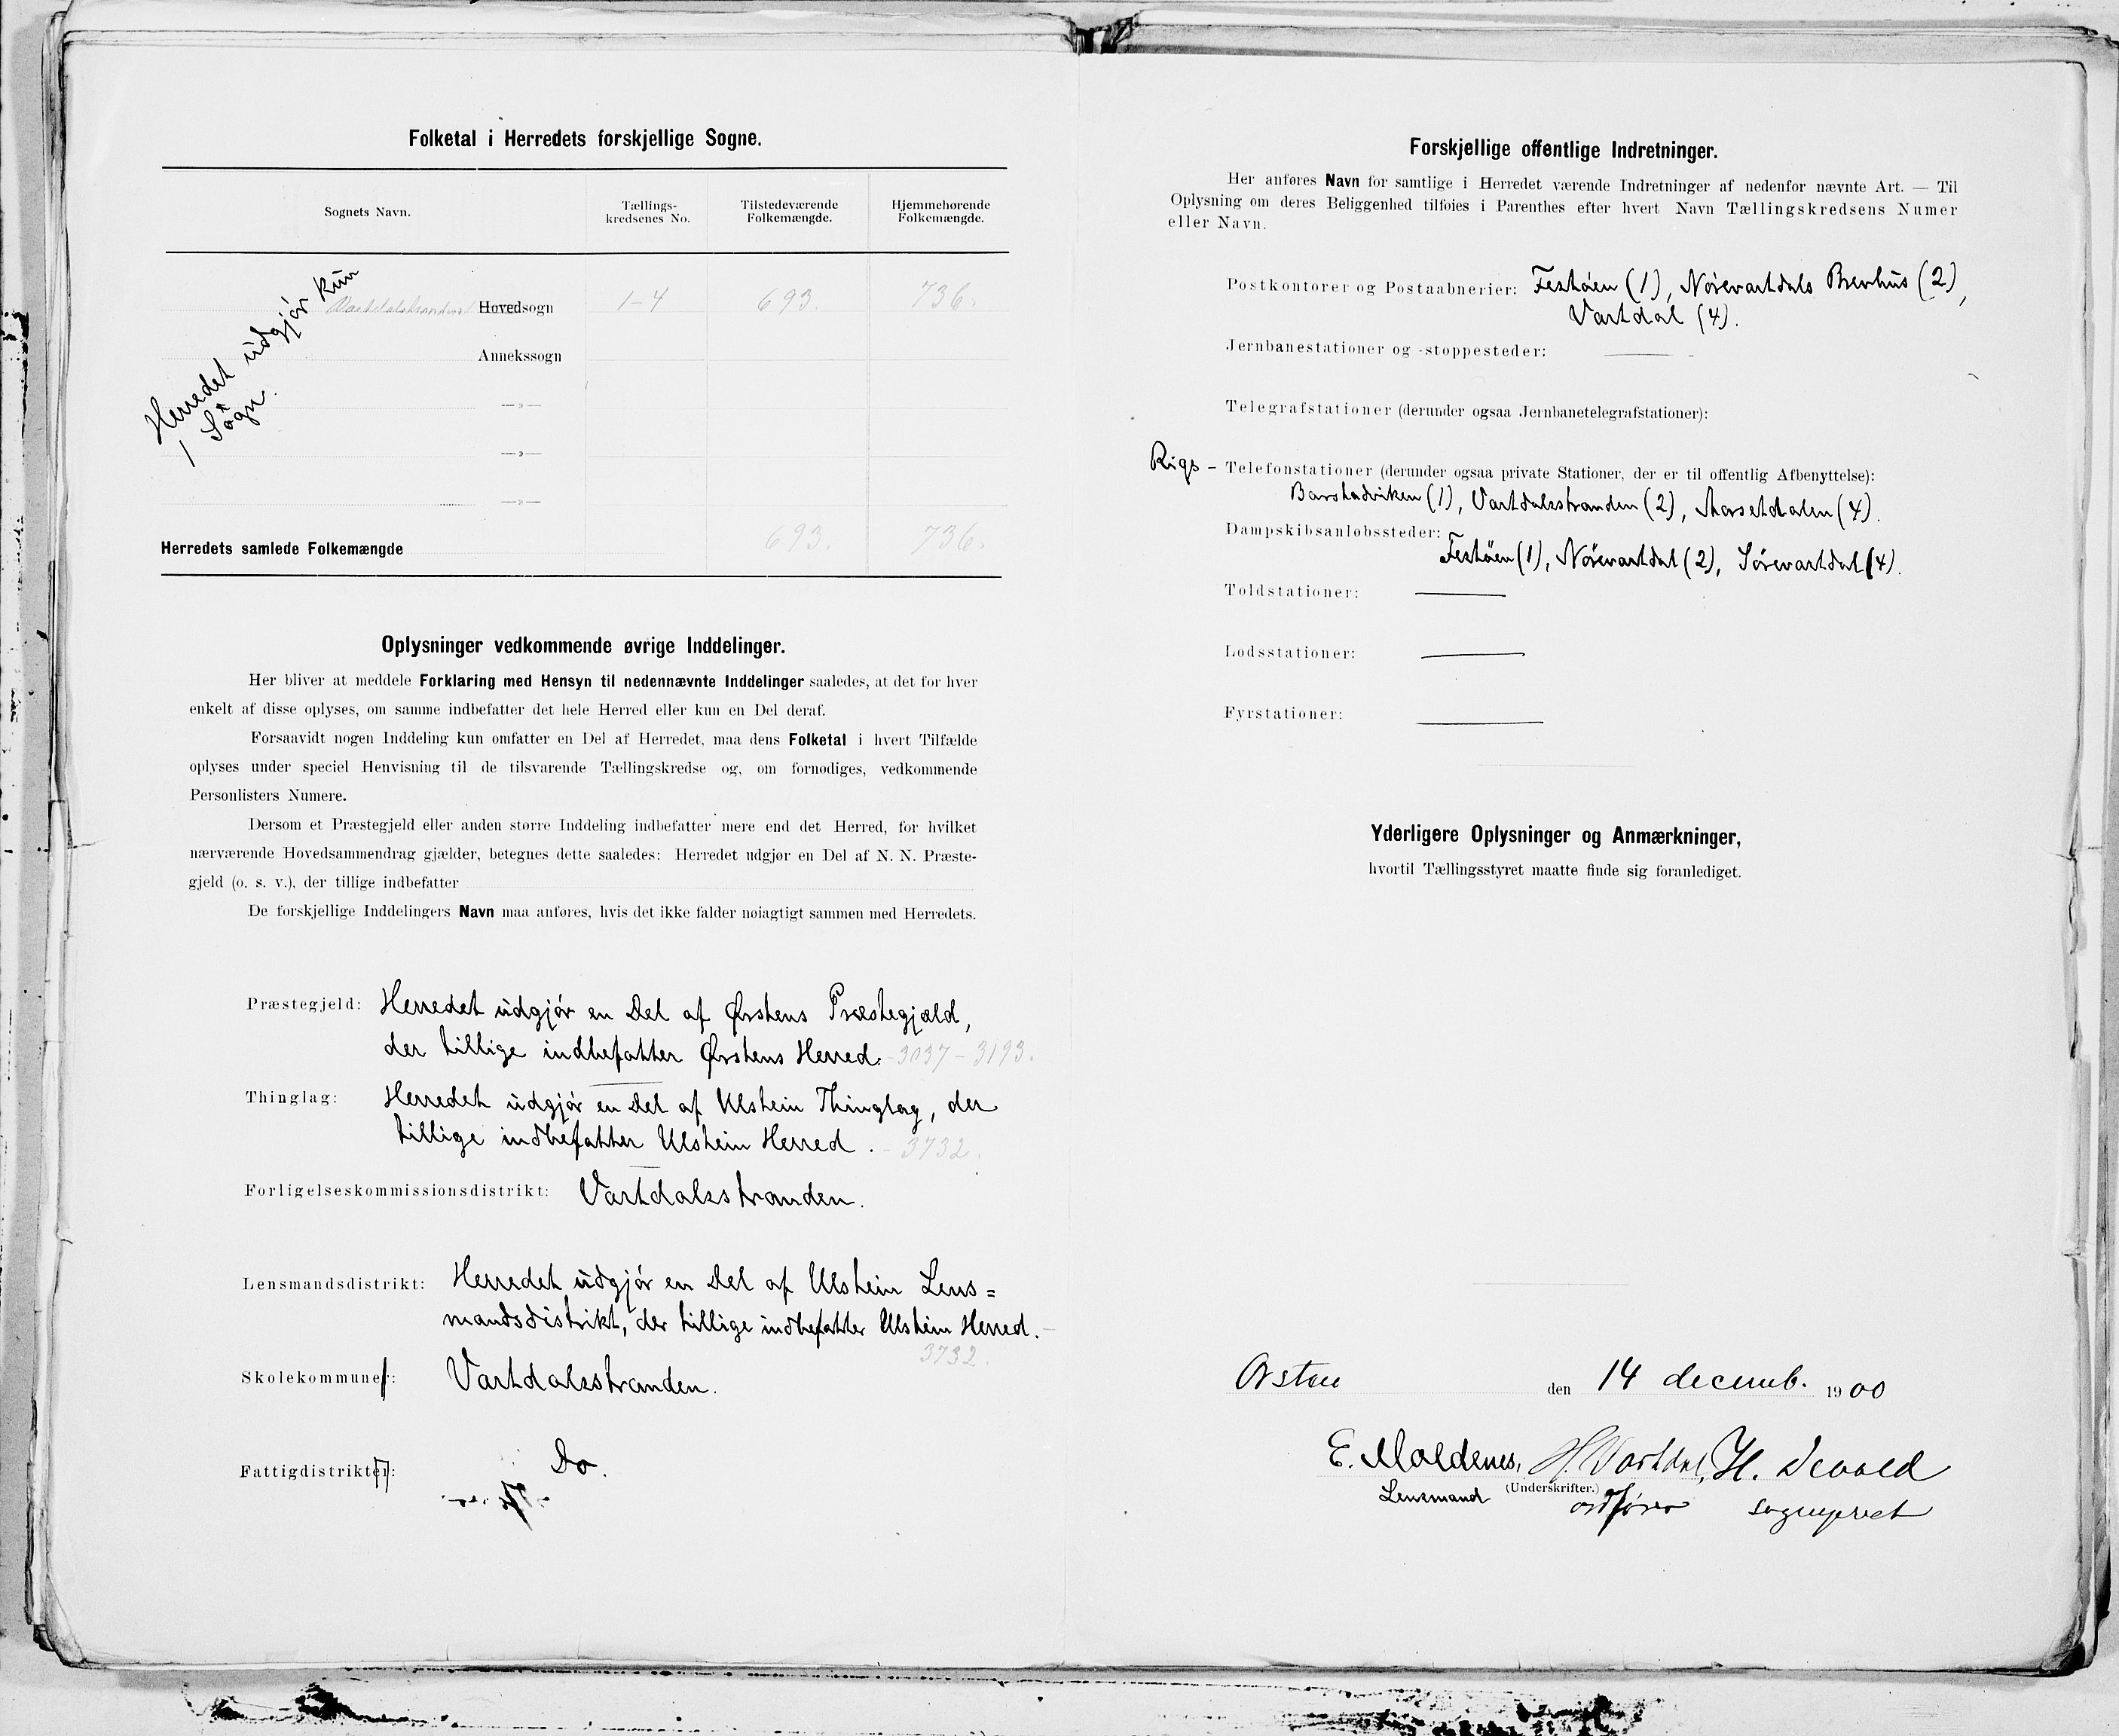 Folketal i Herredets forskjellige Sogne.
Sognets Navn.
Tællings-
kredsenes No.
Tilstedeværende
Folkemængde.
Hjemmehørende
Folkemængde.
Herredet udgjör kun
1 Sogn.
Vartdalsstranden Hovedsogn 1-4 693. 736.
Annekssogn
—»—
—»—
—»—
Herredets samlede Folkemængde 693. 736.
Oplysninger vedkommende øvrige Inddelinger.
Her bliver at meddele Forklaring med Hensyn til nedennævnte Inddelinger saaledes, at det for hver
enkelt af disse oplyses, om samme indbefatter det hele Herred eller kun en Del deraf.
Forsaavidt nogen Inddeling kun omfatter en Del af Herredet, maa dens Folketal i hvert Tilfælde
oplyses under speciel Henvisning til de tilsvarende Tællingskredse og, om fornødiges, vedkommende
Personlisters Numere.
Dersom et Præstegjeld eller anden større Inddeling indbefatter mere end det Herred, for hvilket
nærværende Hovedsammendrag gjælder, betegnes dette saaledes: Herredet udgjør en Del af N. N. Præste-
gjeld (o. s. v.), der tillige indbefatter
De forskjellige Inddelingers Navn maa anføres, hvis det ikke falder nøiagtigt sammen med Herredets.
Præstegjeld: Herredet udgjör en Del af Ørstens Præstegjæld,
der tillige indbefatter Ørstens Herred. - 3037 - 3193.
Thinglag: Herredet udgjör en Del af Ulstein Thinglag, der
tillige indbefatter Ulstein Herred. - 3732.
Forligelseskommissionsdistrikt: Vartdalsstranden.
Lensmandsdistrikt: Herredet udgjör en Del af Ulstein Lens=
mandsdistrikt, der tillige indbefatter Ulstein Herred. -
3732.
Skolekommuner: Vartdalsstranden.
Fattigdistrikter: Do.
Forskjellige offentlige Indretninger.
Her anføres Navn for samtlige i Herredet værende Indretninger af nedenfor nævnte Art. — Til
Oplysning om deres Beliggenhed tilføies i Parenthes efter hvert Navn Tællingskredsens Numer
eller Navn.
Postkontorer og Postaabnerier: Festöen (1), Nörevartdals Brevhus (2),
Vartdal (4).
Jernbanestationer og -stoppesteder: —
Telegrafstationer (derunder ogsaa Jernbanetelegrafstationer):
Rigs - Telefonstationer (derunder ogsaa private Stationer, der er til offentlig Afbenyttelse):
Barstadviken (1), Vartdalsstranden (2), Aarsetdalen (4).
Dampskibsanløbssteder:
Festöen (1), Nörevartdal (2), Sörevartdal (4).
Toldstationer: —
Lodsstationer: —
Fyrstationer: —
Yderligere Oplysninger og Anmærkninger,
hvortil Tællingsstyret maatte finde sig foranlediget.
Ørsten den 14 decemb. 1900
E. Moldenes, H. Vartdal, H.
Lensmand (Underskrifter.) ordfører sogneprest